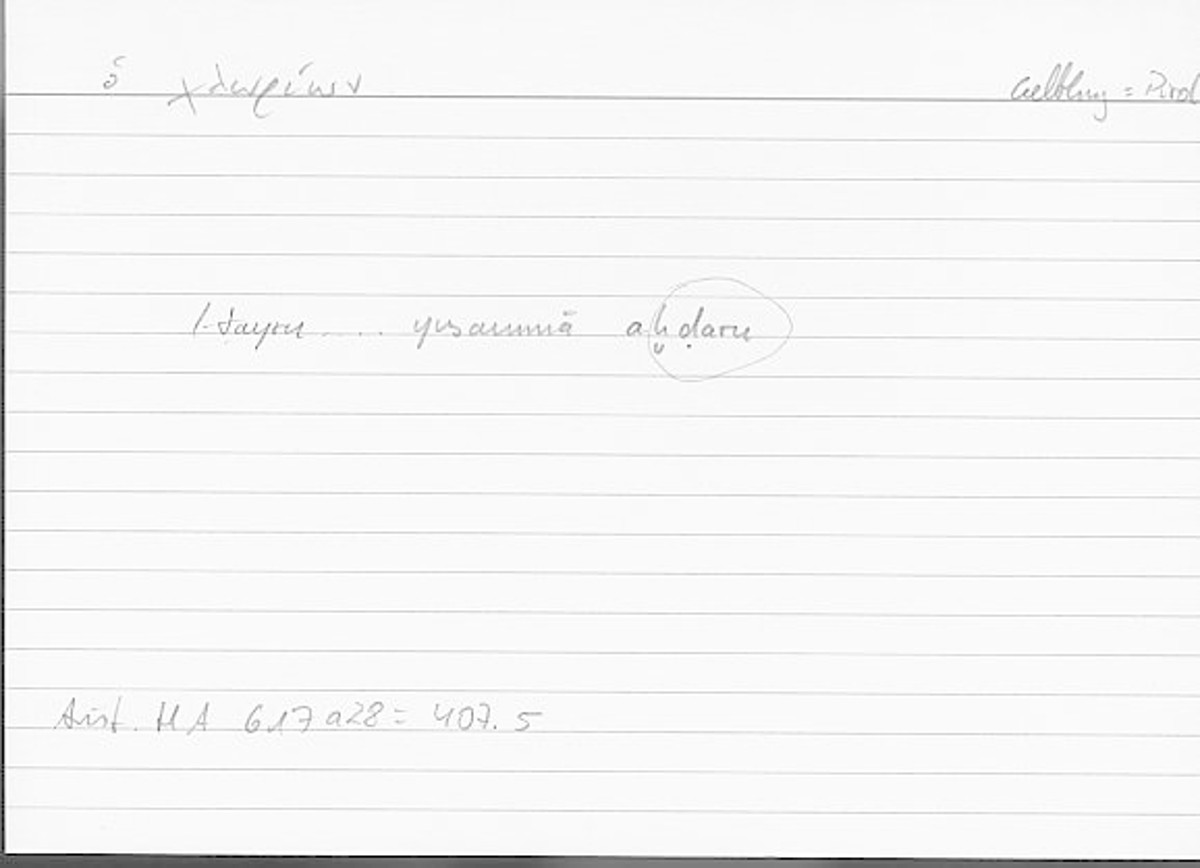 ὁ χλωρίων Gelbling = Pirol
l-ṭayru .... yusammā aḫḍaru
Arist. HA 617a28 = 407.5